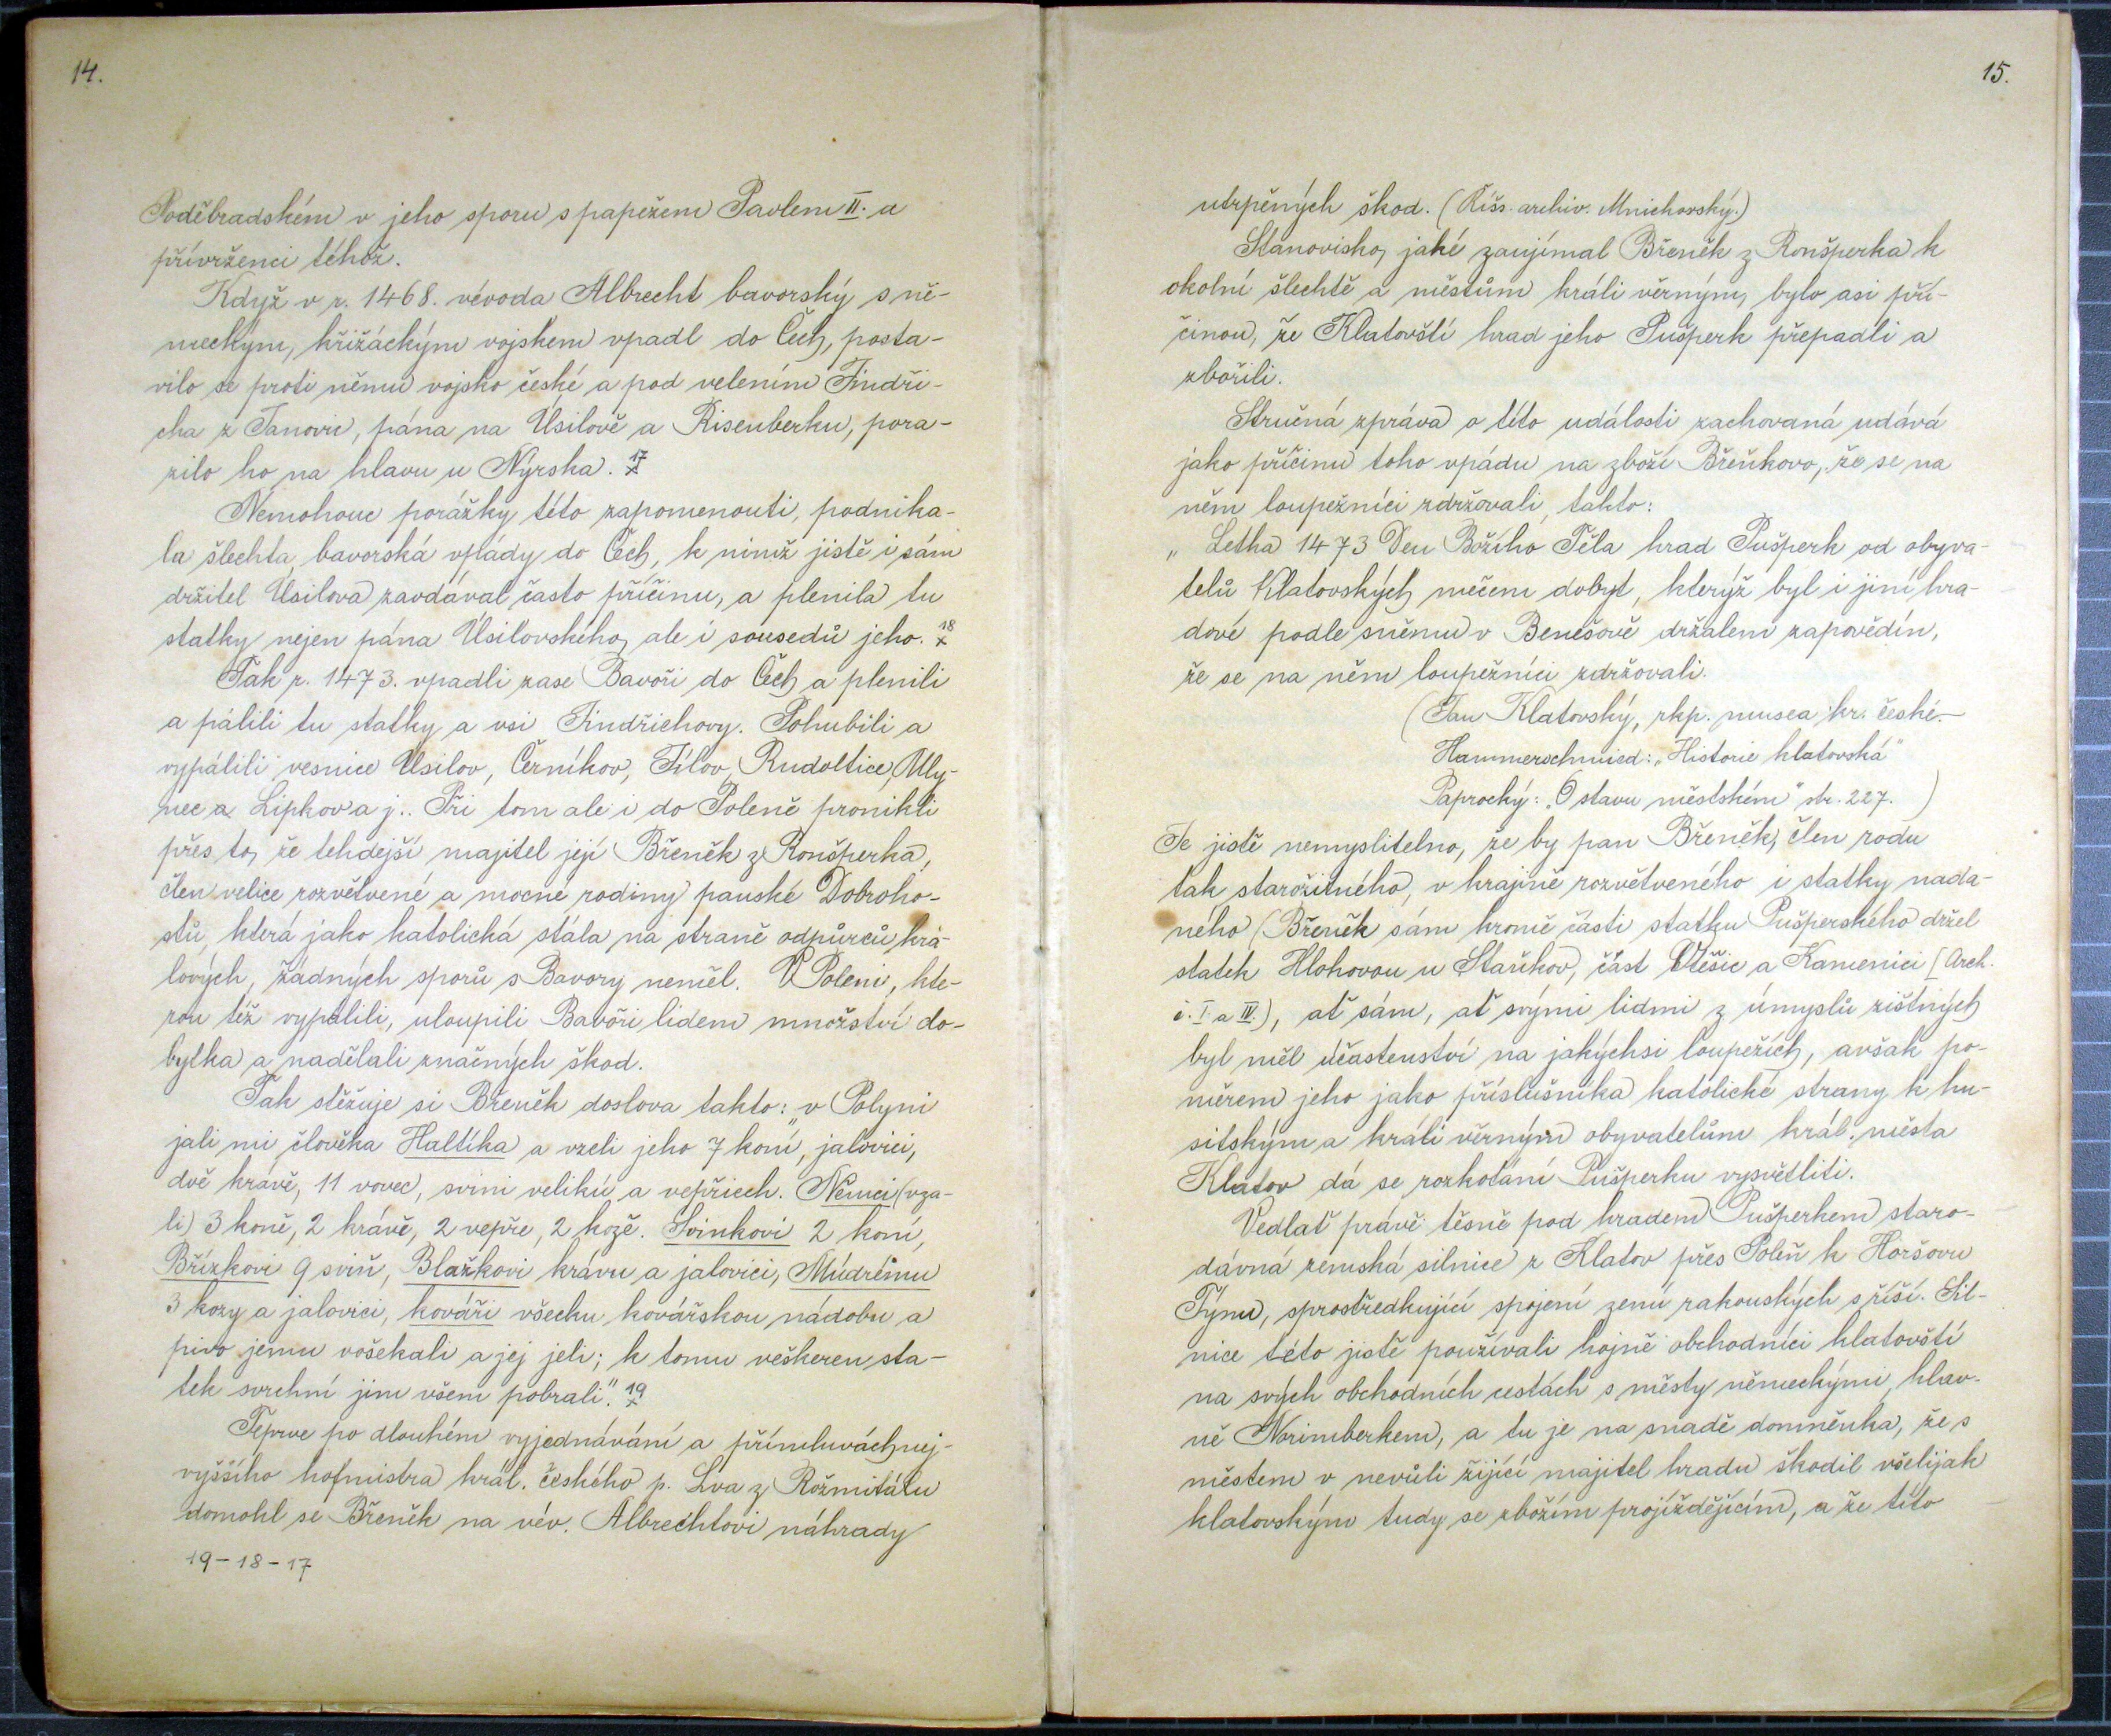 14.
Poděbradském v jeho sporu s papežem Pavlem II. a
přívrženci téhož.
Když v r. 1468. vévoda Albrecht bavorský s ně-
meckým, křižáckým vojskem vpadl do Čech, posta-
vilo se proti němu vojsko české a pod velením Jindři-
cha z Janovic, pána na Úsilově a Risenberku, pora-
zilo ho na hlavu u Nýrska. 17
x
Nemohouc porážky této zapomenouti, podnika-
la šlechta bavorská vpády do Čech, k nimž jistě i sám
držitel Úsilova zavdával často příčinu, a plenila tu
statky nejen pána Úsilovského, ale i sousedů jeho. 18
x
Tak r. 1473. vpadli zase Bavoři do Čech a plenili
a pálili tu statky a vsi Jindřichovy. Pohubili a
vypálili vesnice Úsilov, Černíkov, Fílov, Rudoltice, Mly-
nec a Lipkov a j.. Při tom ale i do Poleně pronikli
přes to, že tehdejší majitel její Břeněk z Ronšperka,
člen velice rozvětvené a mocné rodiny panské Dobroho-
stů, která jako katolická stála na straně odpůrců krá-
lových, žádných sporů s Bavory neměl. V Poleni, kte-
rou též vypálili, uloupili Bavoři lidem množství do-
bytka a nadělali značných škod.
Tak stěžuje si Břeněk doslova takto: „v Polyni
jali mi člověka Haltíka a vzeli jeho 7 koní, jalovici,
dvě krávě, 11 vovec, svini velikú a vepřiech. Němci (vza-
li) 3 koně, 2 krávě, 2 vepře, 2 kozě. Svinkovi 2 koní,
Břízkovi 9 sviň, Blažkovi krávu a jalovici, Múdrému
3 kozy a jalovici, kováři všecku kovářskou nádobu a
pivo jemu vošekali a jej jeli; k tomu veškeren sta-
tek svrchní jim všem pobrali". 19
x
Teprve po dlouhém vyjednávání a přímluvách nej-
vyššího hofmistra král. českého p. Lva z Rožmitálu
domohl se Břeněk na vév. Albrechtovi náhrady
19-18-17
15.
utrpěných škod. (Říšs. archiv. Mnichovský.)
Stanovisko, jaké zaujímal Břeněk z Ronšperka k
okolní šlechtě a městům králi věrným, bylo asi pří-
činou, že Klatovští hrad jeho Pušperk přepadli a
zbořili.
Stručná zpráva o této události zachovaná udává
jako příčinu toho vpádu na zboží Břeňkovo, že se na
něm loupežníci zdržovali, takto:
„Letha 1473 Den Božího Těla hrad Pušperk od obyva-
telů Klatovských mečem dobyt, kterýž byl i jiní hra-
dové podle sněmu v Benešově držalem zapovědín,
že se na něm loupežníci zdržovali.
(Jan Klatovský, rkp. musea kr. české.-
Hammerschmied: „Historie klatovská"
Paprocký: „O stavu městském" str. 227. )
Je jistě nemyslitelno, že by pan Břeněk, člen rodu
tak starožitného, v krajině rozvětveného i statky nada-
ného (Břeněk sám kromě části statku Pušperského držel
statek Hlohovou u Staňkov, část Utěšic a Kamenici (Arch.
č. I. a IV.), ať sám, ať svými lidmi z úmyslů zištných
byl měl účastenství na jakýchsi loupežích, avšak po-
měrem jeho jako příslušníka katolické strany k hu-
sitským a králi věrným obyvatelům král. města
Klatov dá se rozkotání Pušperku vysvětliti.
Vedlať právě těsně pod hradem Pušperkem staro-
dávná zemská silnice z Klatov přes Poleň k Horšovu
Týnu, sprostředkující spojení zemí rakouských s říší. Sil-
nice této jistě používali hojně obchodníci klatovští
na svých obchodních cestách s městy německými, hlav-
ně Norimberkem, a tu je na snadě domněnka, že s
městem v nevůli žijící majitel hradu škodil všelijak
klatovským tudy se zbožím projíždějícím, a že tito